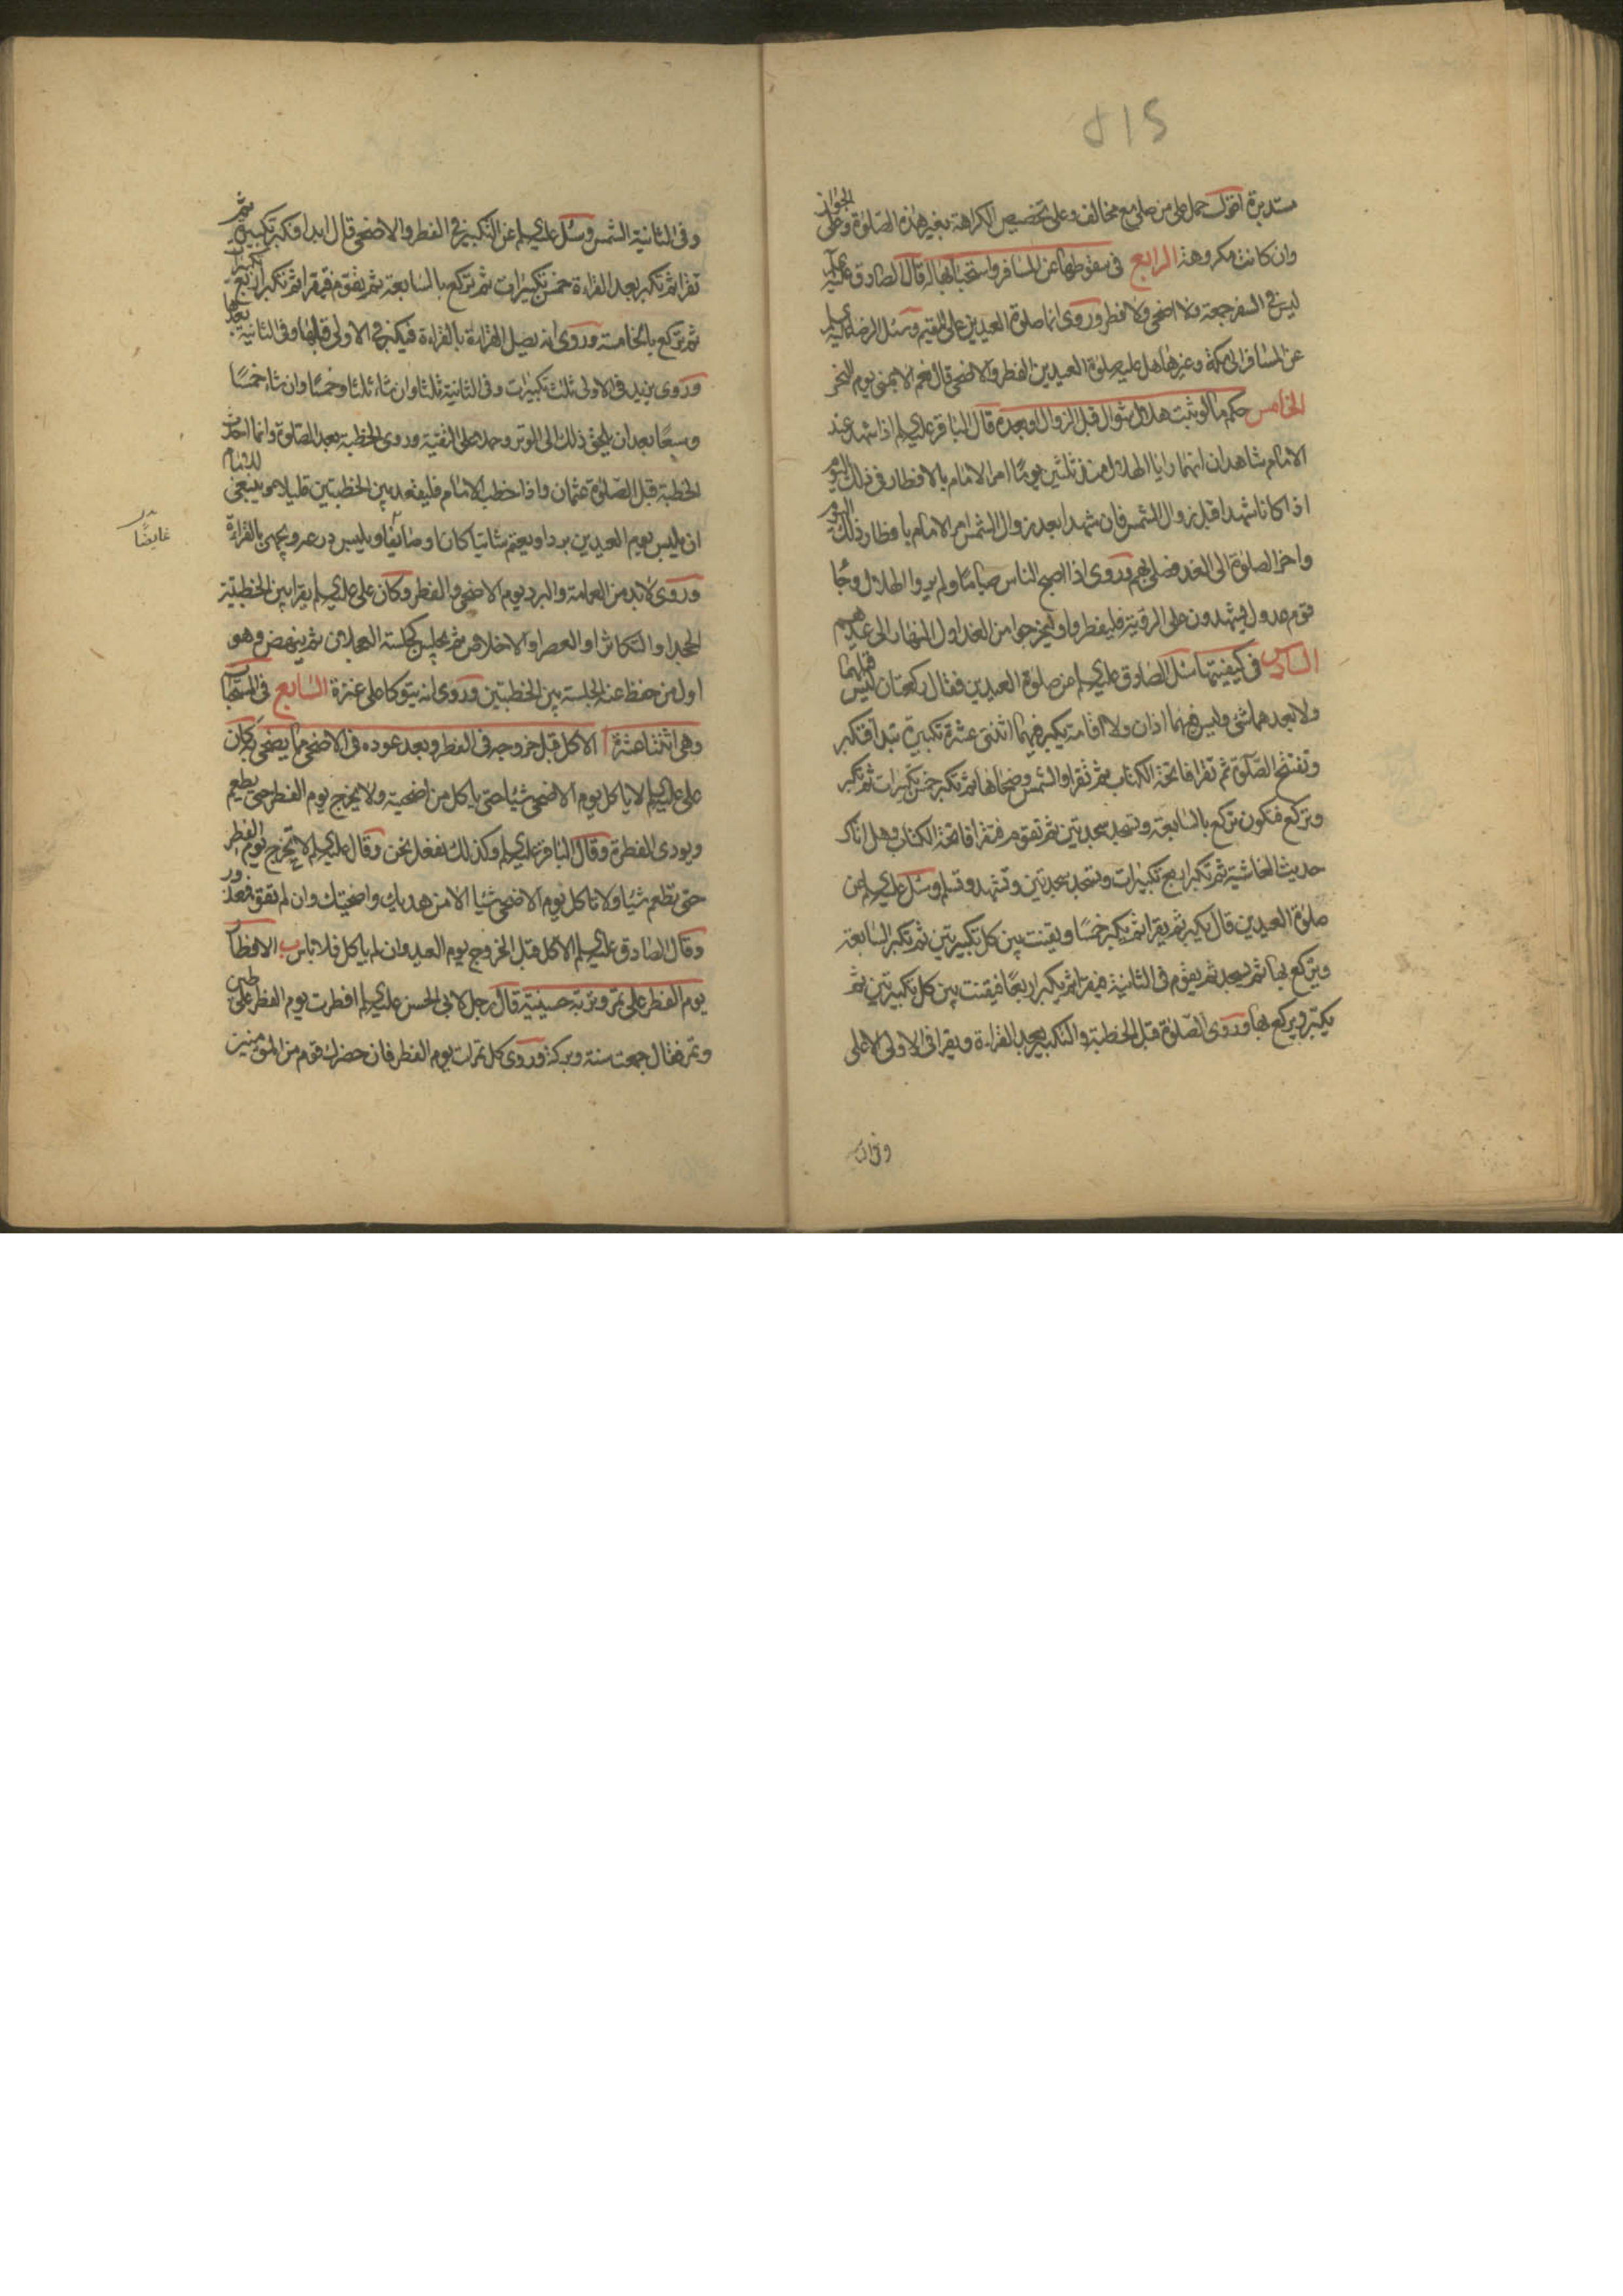 512
مستديرة اقول حمل على من صلى مع مخالف وعلى تخصيص الكراهة بغير هذه الصلوة وعلى الجواز
وان كانت مكروهة الرابع في سقوطها عن المسافر واستحبابها له قال الصادق عليه
ليس في السفر جمعة ولا اضحى ولا فطر وروى انما صلوة العيدين على المقيم وسئل الرضا عليه السلم
عن المسافر الى مكة وغيرها هل عليه صلوة العيدين الفطر والاضحى قال نعم الا بمنى يوم النحر
الخامس حكم ما لو ثبت هلال شوال قبل الزوال او بعده قال الباقر عليه السلم اذا شهد عند
الامام شاهدان انهما رايا الهلال منذ ثلثين يومًا امر الامام بالافطار في ذلك اليوم
اذا كانا شهدا قبل زوال الشمس فان شهدا بعد زوال الشمس امر الامام بافطار ذلك اليوم
واخر الصلوة الى الغد فصلى بهم وروى اذا اصبح الناس صيامًا ولم يروا الهلال وجا
قوم عدول يشهدون على الرؤية فليفطروا وليخرجوا من الغد اول النهار الى عيدهم
السادس في كيفيتها سئل الصادق عليه السلم عن صلوة العيدين فقال ركعتان ليس قبلهما
ولا بعدهما شئ وليس فيهما اذان ولا اقامة يكبر فيهما اثنتى عشرة تكبيرة تبدأ فتكبر
وتفتتح الصلوة ثم تقرا فاتحة الكتاب ثم تقرا والشمس وضحاها ثم تكبر خمس تكبيرات ثم تكبر
وتركع فتكون تركع بالسابعة وتسجد سجدتين ثم تقوم فتقرا فاتحة الكتاب وهل اتاك
حديث الغاشية ثم تكبر اربع تكبيرات وتسجد سجدتين وتشهد وتسلم وسئل عليه السلم عن
صلوة العيدين قال يكبر ثم يقرا ثم يكبر خمسًا ويقنت بين كل تكبيرتين ثم تكبر السابعة
ويركع بها ثم يسجد ثم يقوم في الثانية فيقرا ثم يكبر اربعًا فيقنت بين كل تكبيرتين ثم
يكبر ويركع بها وروى الصلوة قبل الخطبة والتكبير بعد القراءة ويقرا في الاولى الاعلى
وفي الثانية الشمس وسئل عليه السلم عن التكبير في الفطر والاضحى قال ابدا فكبر تكبيرة ثم
تقرا ثم تكبر بعد القراءة خمس تكبيرات ثم تركع بالسابعة ثم تقوم فتقرا ثم تكبر اربع تكبيرات
ثم تركع بالخامسة وروى انه يصل القراءة بالقراءة فيكبر في الاولى قبلها وفي الثانية بعدها
وروى يزيد في الاولى ثلث تكبيرات وفي الثانية ثلثا وان شاء ثلثا وخمسًا وان شاء خمسًا
وسبعًا بعد ان يلحق ذلك الى الوتر وحمل على التقية وروى الخطبة بعد الصلوة وانما احدث
الخطبة قبل الصلوة عثمان واذا خطب الامام فليقعد بين الخطبتين قليلا وينبغي للامام
ان يلبس يوم العيدين بردا ويعتم شاتيا كان او صايفًا ويلبس درعه ويجهر بالقراءة
وروى لا بد من العمامة والبرد يوم الاضحى والفطر وكان على عليه السلم يقرا بين الخطبتين
الجحد او التكاثر او العصر او الاخلاص ثم يجلس كجلسة العجلان ثم ينهض وهو
اول من حفظ عنه الجلسة بين الخطبتين وروى انه يتوكا على عنزة السابع في المستحبات
وهي اثنتا عشرة ا الاكل قبل خروجه في الفطر وبعد عوده في الاضحى مما يضحى به كان
على عليه السلم لا ياكل يوم الاضحى شيئا حتى ياكل من اضحيته ولا يخرج يوم الفطر حتى يطعم
ويودى الفطرة وقال الباقر عليه السلم وكذلك نفعل نحن وقال عليه السلم لا تخرج يوم الفطر
حتى تطعم شيئا ولا تاكل يوم الاضحى شيئا الا من هديك واضحيتك وان لم تقو فمعذور
وقال الصادق عليه السلم الاكل قبل الخروج يوم العيد وان لم ياكل فلا باس ب الافطار
يوم الفطر على تمر وتربة حسينية قال رجل لابى الحسن عليه السلم افطرت يوم الفطر على طين
وتمر فقال جمعت سنة وبركة وروى كل تمرات يوم الفطر فان حضرك قوم من المؤمنين